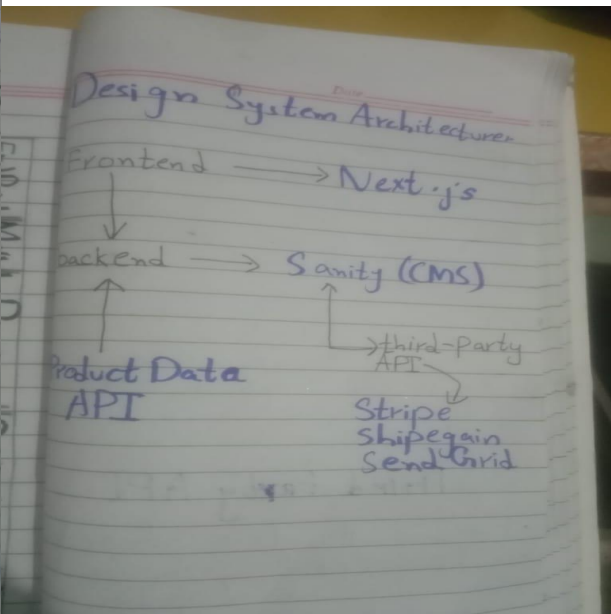 Design System Architecturer
Frontend → Next.js
backend → Sanity (CMS)
third-party
API
Product Data
API
Stripe
Shipegain
Send Grid